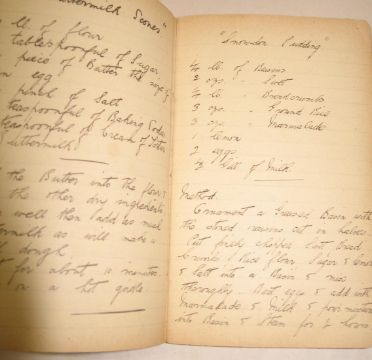 termilk Scones"
lb of flour
tablespoonful of Sugar
piece of Butter the size of
egg
pinch of Salt
teaspoonful of Baking Soda
teaspoonful of Cream of Tartar
uttermilk
the Butter into the flour
the other dry ingredients
well then add as much
rmilk as will make a
dough
for about 10 minutes
on a hot girdle
"Snowdon Pudding"
½ lb of Raisins
3 ozs Suet
¼ lb Breadcrumbs
3 ozs Ground Rice
3 ozs Marmalade
1 lemon
2 eggs
½ Gill of Milk
Method
Ornament a Greased Basin with
the stoned raisins cut in halves.
Put finely chopped Suet Bread
Crumbs, Rice flour, Sugar & lemon
& Salt into a Basin & mix
thoroughly. Beat eggs & add with
Marmalade & Milk & pour mixture
into Basin & Steam for 2 hours